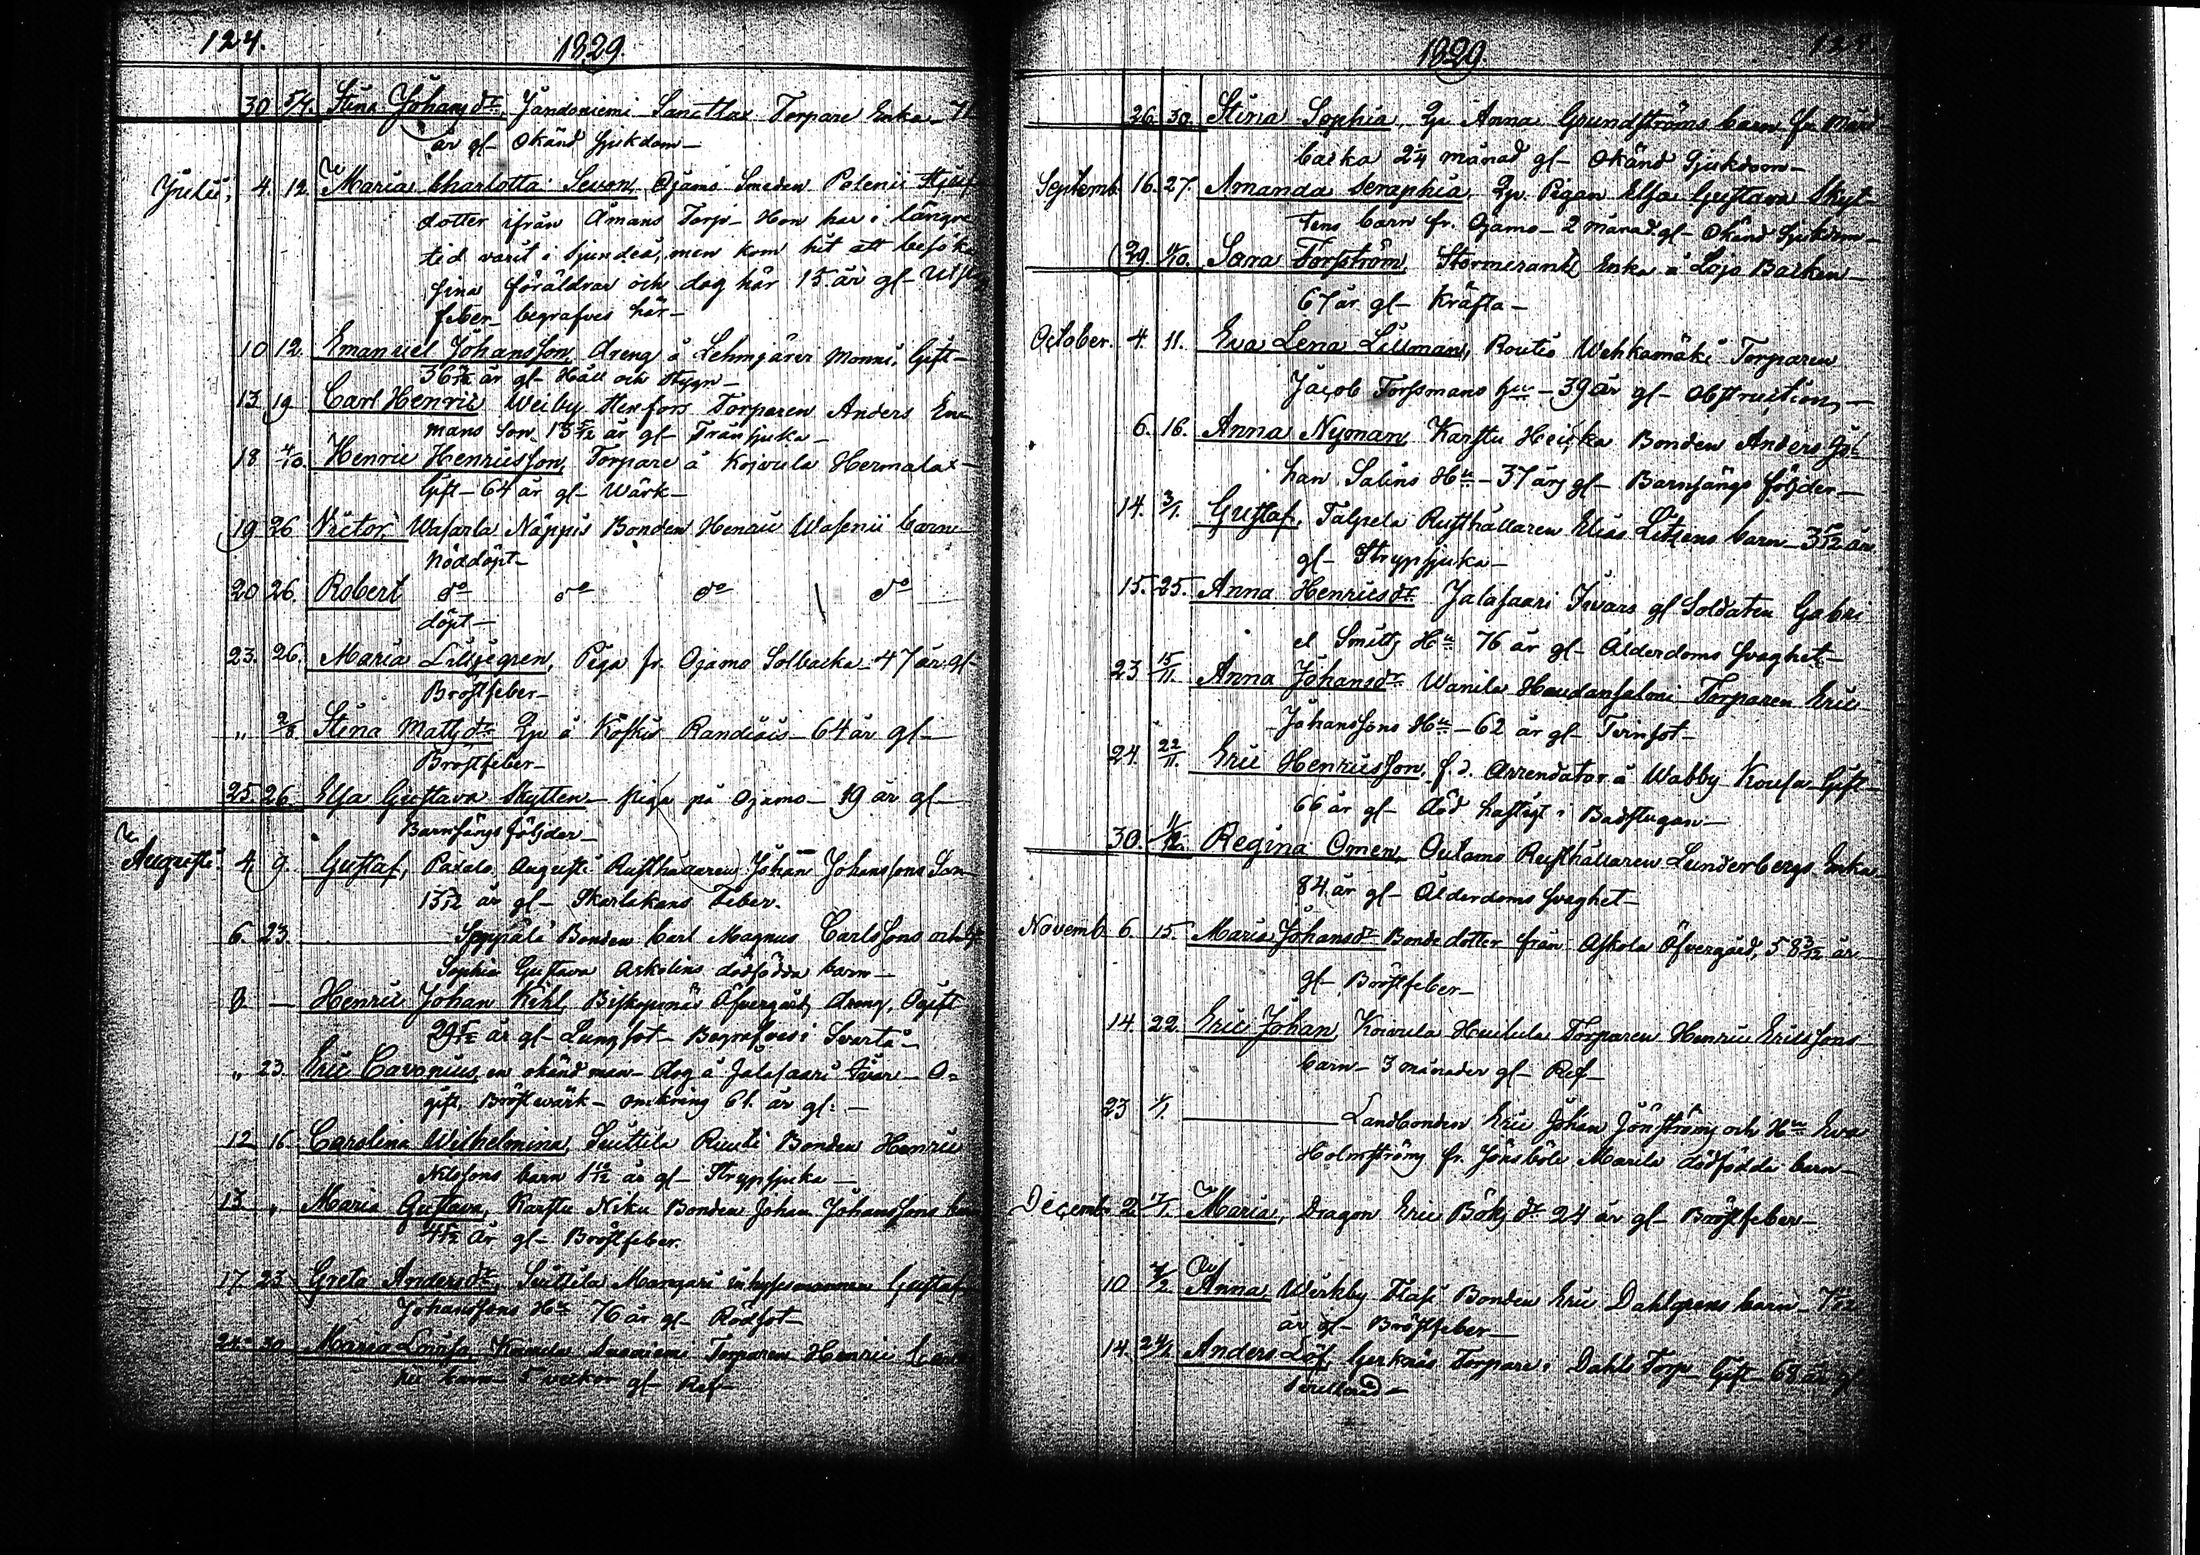 124.
1829.
30 5/7. Stina Johansdr. Torpare Enka
år gl- Okänd Sjukdom-
Julii. 4. 12 Maria Charlotta Sevon, Ojamo Smeden Polenii
dotter ifrån Åmans Torp- Hon har i längre
tid varit i Sjundeå, men kom hit att besöka
sina föräldrar och dog här 15 år gl-
feber- begrafves här-
10 12. Emanuel Johansson, dreng å Lehmjärvi Monni. Gift-
år gl- Håll och Stygn-
13 19 Carl Henric Torparen Anders
mans Son 13 5/12 år gl- Tränsjuka-
18 4/10. Henric Henricsson, Torpare å Koivula Hermala
Gift- 64 år gl- Wärk-
19 26 Victor, Wasarla Näppis Bonden Henric Wasenii barn
Nöddöpt-
20 26. Robert do do do do
döpt-
23. 26. Maria Liljegren, Piga fr. Ojamo Solbacka- 47 år gl-
Bröstfeber-
" 2/8. Stina Matsdr å Köskis 64 år gl-
Bröstfeber-
25 26 Elsa Gustava Skytten- piga på Ojamo- år gl-
Barnsängs följder-
Augusti. 4. 9. Gustaf, Paxalo Rusthållaren Johan Johanssons Son
år gl- Skarlakans Feber.
6. 23. Bonden Carl Magnus Carlssons och
Sophia Gustava dödfödda barn-
- Henric Johan Kihl, Öfvergård, dreng, Ogift
år gl- Lungsot- Begrafves i Svartå-
" 23. Eric Cavonius, en okänd man- dog å Jalasaari Ivar- O-
gift, Bröstwärk- omkring 61. år gl:-
12 16 Carolina Wilhelmina, Suittila Ruuti Bonden Henric
Nilssons barn år gl- Strypsjuka-
13. " Maria Gustava, Karstu Niku Bonden Johan Johanssons
år gl- Bröstfeber.
17. 23. Greta Andersdr. Suittila Gustaf
Johanssons Hu 76 år gl- Rödsot-
30 Maria Lovisa, Torparen Henric
barn- 5 veckor gl- Ref-
1829.
26. 30. Stina Sophia, Anna Grundströms barn fr.
backa 2 1/4 månad gl- Okänd Sjukdom-
Septemb. 16. 27. Amanda Seraphia, Pigan Elsa Gustava Skyt-
tens barn fr. Ojamo- 2 månad gl- Okänd Sjukdom-
29. Sara Forsström, Enka å Lojo Backen-
67 år gl- Kräfta-
October. 4. 11. Eva Lena Lillman, Routio Wehkamäki Torparen
Jacob Forssmans hu- 39 år gl- Obstruction-
6. 16. Anna Nyman, Karstu Heikka Bonden Anders Jo-
han Salins Hu- 37 år gl- Barnsängs följder-
14. Gustaf, Talpela Rusthållaren Elias barn- 3 5/12 år
gl- Strypsjuka-
15. 25. Anna Henricsdr Jalasaari Ivars gl Soldaten Gabri
el Smitts Hu 76 år gl- Ålderdoms Svaghet-
23 15/11. Anna Johansdr Wanila Haudansalmi Torparen Eric
Johanssons Hu- 62 år gl- Tvinsot-
24. 22/11. Eric Henricsson, f.d. Arrendator å Wabby Gift-
66 år gl- död hastigt i Badstugan-
30. Regina Omen, Outamo Rusthållaren Lunderbergs Enka
84 år gl- Ålderdoms Svaghet-
Novemb. 6. 15. Maria Johansdr Bonde dotter från Askola Öfvergård, 58 3/12 år
gl- Bröstfeber-
14. 22. Eric Johan, Koivula Huhula Torparen Henric Ericssons
barn- 3 månader gl- Ref-
23 Landbonden Eric Johan Jönström och Hu Eva
Holmström fr. Jönsböle Marila dödfödda barn-
Decemb. 2 Maria, Dragon Eric Böks dr 24 år gl- Bröstfeber-
10 Anna, Wirkby Bonden Eric Dahlgrens barn-
år gl- Bröstfeber-
14. Anders Löf, Gerknäs Torpare i Dahls Torp- Gift- 68 år gl